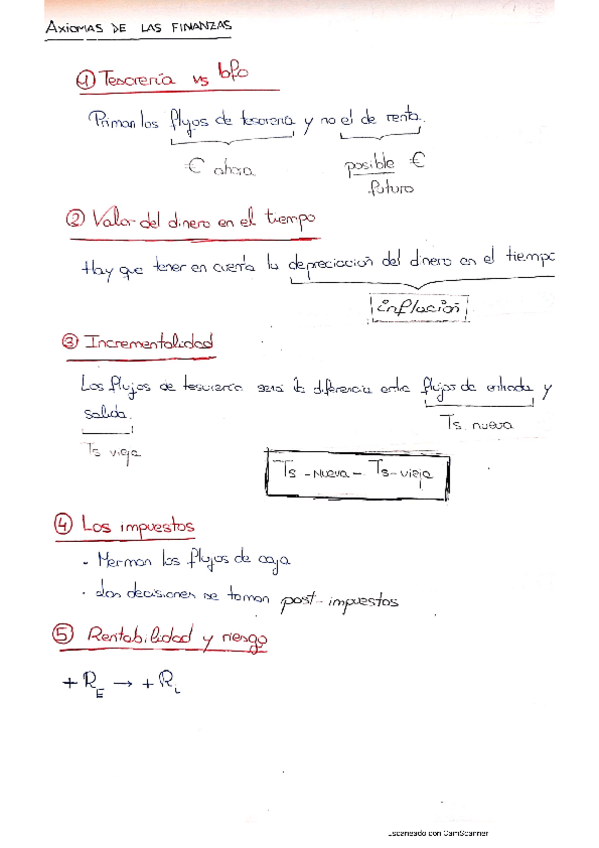 AXIOMAS DE LAS FINANZAS
① Tesorería vs bfo
Priman los flujos de tesorería y no el de renta.
€ ahora
posible €
futuro
② Valor del dinero en el tiempo
Hay que tener en cuenta la depreciación del dinero en el tiempo
inflación
③ Incrementalidad
Los flujos de tesorería será la diferencia entre flujos de entrada y
salida.
Ts nueva
Ts vieja
Ts-nueva - Ts-vieja
④ Los impuestos
- Merman los flujos de caja
· Las decisiones se toman post-impuestos
⑤ Rentabilidad y riesgo
+ R_E → + R_i
Escaneado con CamScanner